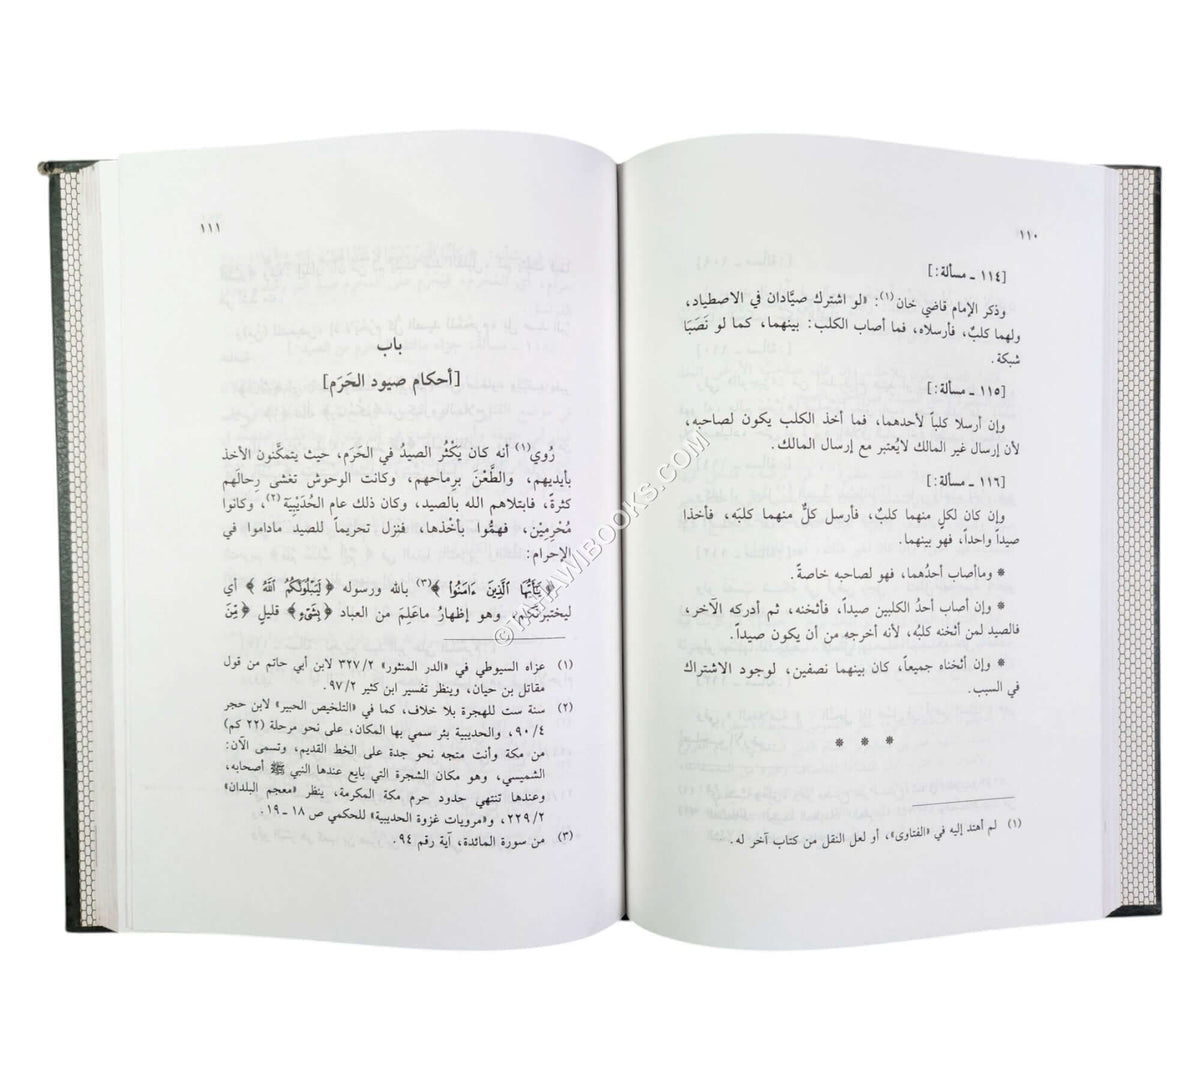 ١١٠
[١١٤ ـ مسألة:]
وذكر الإمام قاضي خان(١): «لو اشترك صيَّادان في الاصطياد،
ولهما كلبٌ، فأرسلاه، فما أصاب الكلب: بينهما، كما لو نَصَبَا
شبكة.
[١١٥ ـ مسألة:]
وإن أرسلا كلباً لأحدهما، فما أخذ الكلب يكون لصاحبه،
لأن إرسال غير المالك لايُعتبر مع إرسال المالك.
[١١٦ ـ مسألة:]
وإن كان لكلٍ منهما كلبٌ، فأرسل كلٌّ منهما كلبَه، فأخذا
صيداً واحداً، فهو بينهما.
* وماأصاب أحدُهما، فهو لصاحبه خاصةً.
* وإن أصاب أحدُ الكلبين صيداً، فأثخنه، ثم أدركه الآخر،
فالصيد لمن أثخنه كلبُه، لأنه أخرجه من أن يكون صيداً.
* وإن أثخناه جميعاً، كان بينهما نصفين، لوجود الاشتراك
في السبب.
* * *
(١) لم أهتد إليه في «الفتاوى»، أو لعل النقل من كتاب آخر له.
١١١
باب
[أحكام صيود الحَرَم]
رُوي(١) أنه كان يَكْثُر الصيدُ في الحَرَم، حيث يتمكَّنون الأخذ
بأيديهم، والطَّعْنَ برِماحهم، وكانت الوحوش تغشى رِحالَهم
كثرةً، فابتلاهم الله بالصيد، وكان ذلك عام الحُدَيْبِيَة(٢)، وكانوا
مُحْرِمِيْن، فهمُّوا بأخْذها، فنزل تحريماً للصيد ماداموا في
الإحرام:
﴿يَٰٓأَيُّهَا ٱلَّذِينَ ءَامَنُوا۟﴾(٣) بالله ورسوله ﴿لَيَبْلُوَنَّكُمُ ٱللَّهُ﴾ أي
ليختبرنكم، وهو إظهارُ ماعَلِمَ من العباد ﴿بِشَىْءٍ﴾ قليلٍ ﴿مِّنَ
(١) عزاه السيوطي في «الدر المنثور» ٣٢٧/٢ لابن أبي حاتم من قول
مقاتل بن حيان، وينظر تفسير ابن كثير ٩٧/٢.
(٢) سنة ست للهجرة بلا خلاف، كما في «التلخيص الحبير» لابن حجر
٩٠/٤، والحديبية بئر سمي بها المكان، على نحو مرحلة (٢٢ كم)
من مكة وأنت متجه نحو جدة على الخط القديم، وتسمى الآن:
الشميسي، وهو مكان الشجرة التي بايع عندها النبي ﷺ أصحابه،
وعندها تنتهي حدود حرم مكة المكرمة، ينظر «معجم البلدان»
٢٢٩/٢، و«مرويات غزوة الحديبية» للحكمي ص ١٨ـ١٩.
(٣) من سورة المائدة، آية رقم ٩٤.